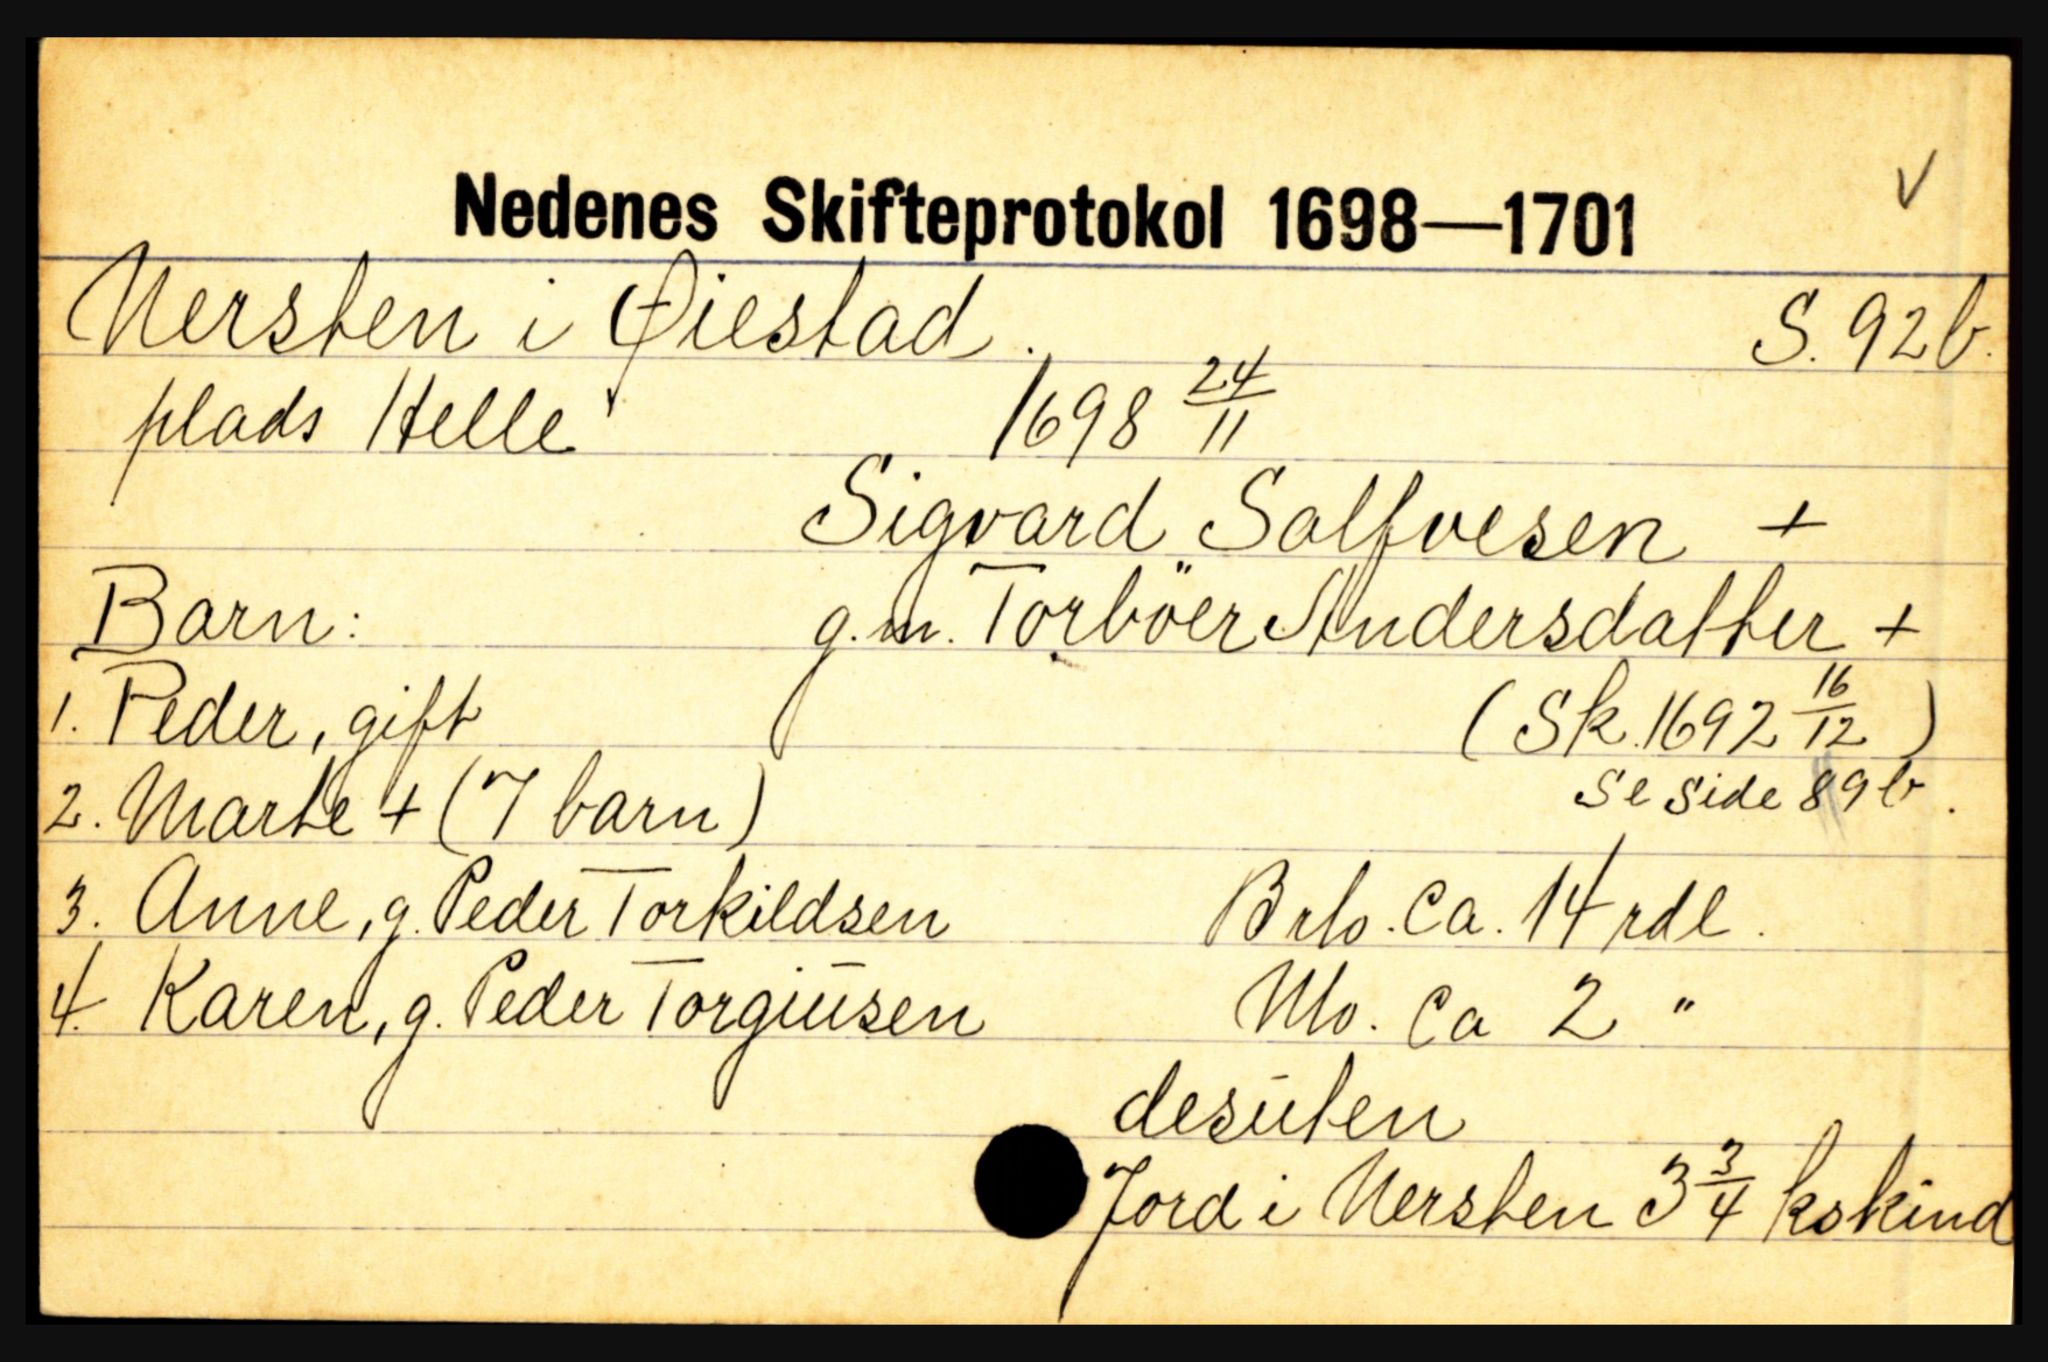 Nedenes Skifteprotokol 1698—1701
Nersten i Øiestad. S. 92b.
plads Helle 1698 24/11
Sigvard Salfvesen +
Barn: g.m. Torböer Andersdatter +
1. Peder, gift (Sk. 1692 16/12)
2. Marte + (7 barn) Se side 89b.
3. Anne, g. Peder Torkildsen Brlo. Ca. 14 rdl.
4. Karen, g. Peder Torgiusen Nlo. Ca 2 "
desuten
Jord i Nersten 3 3/4 kskind